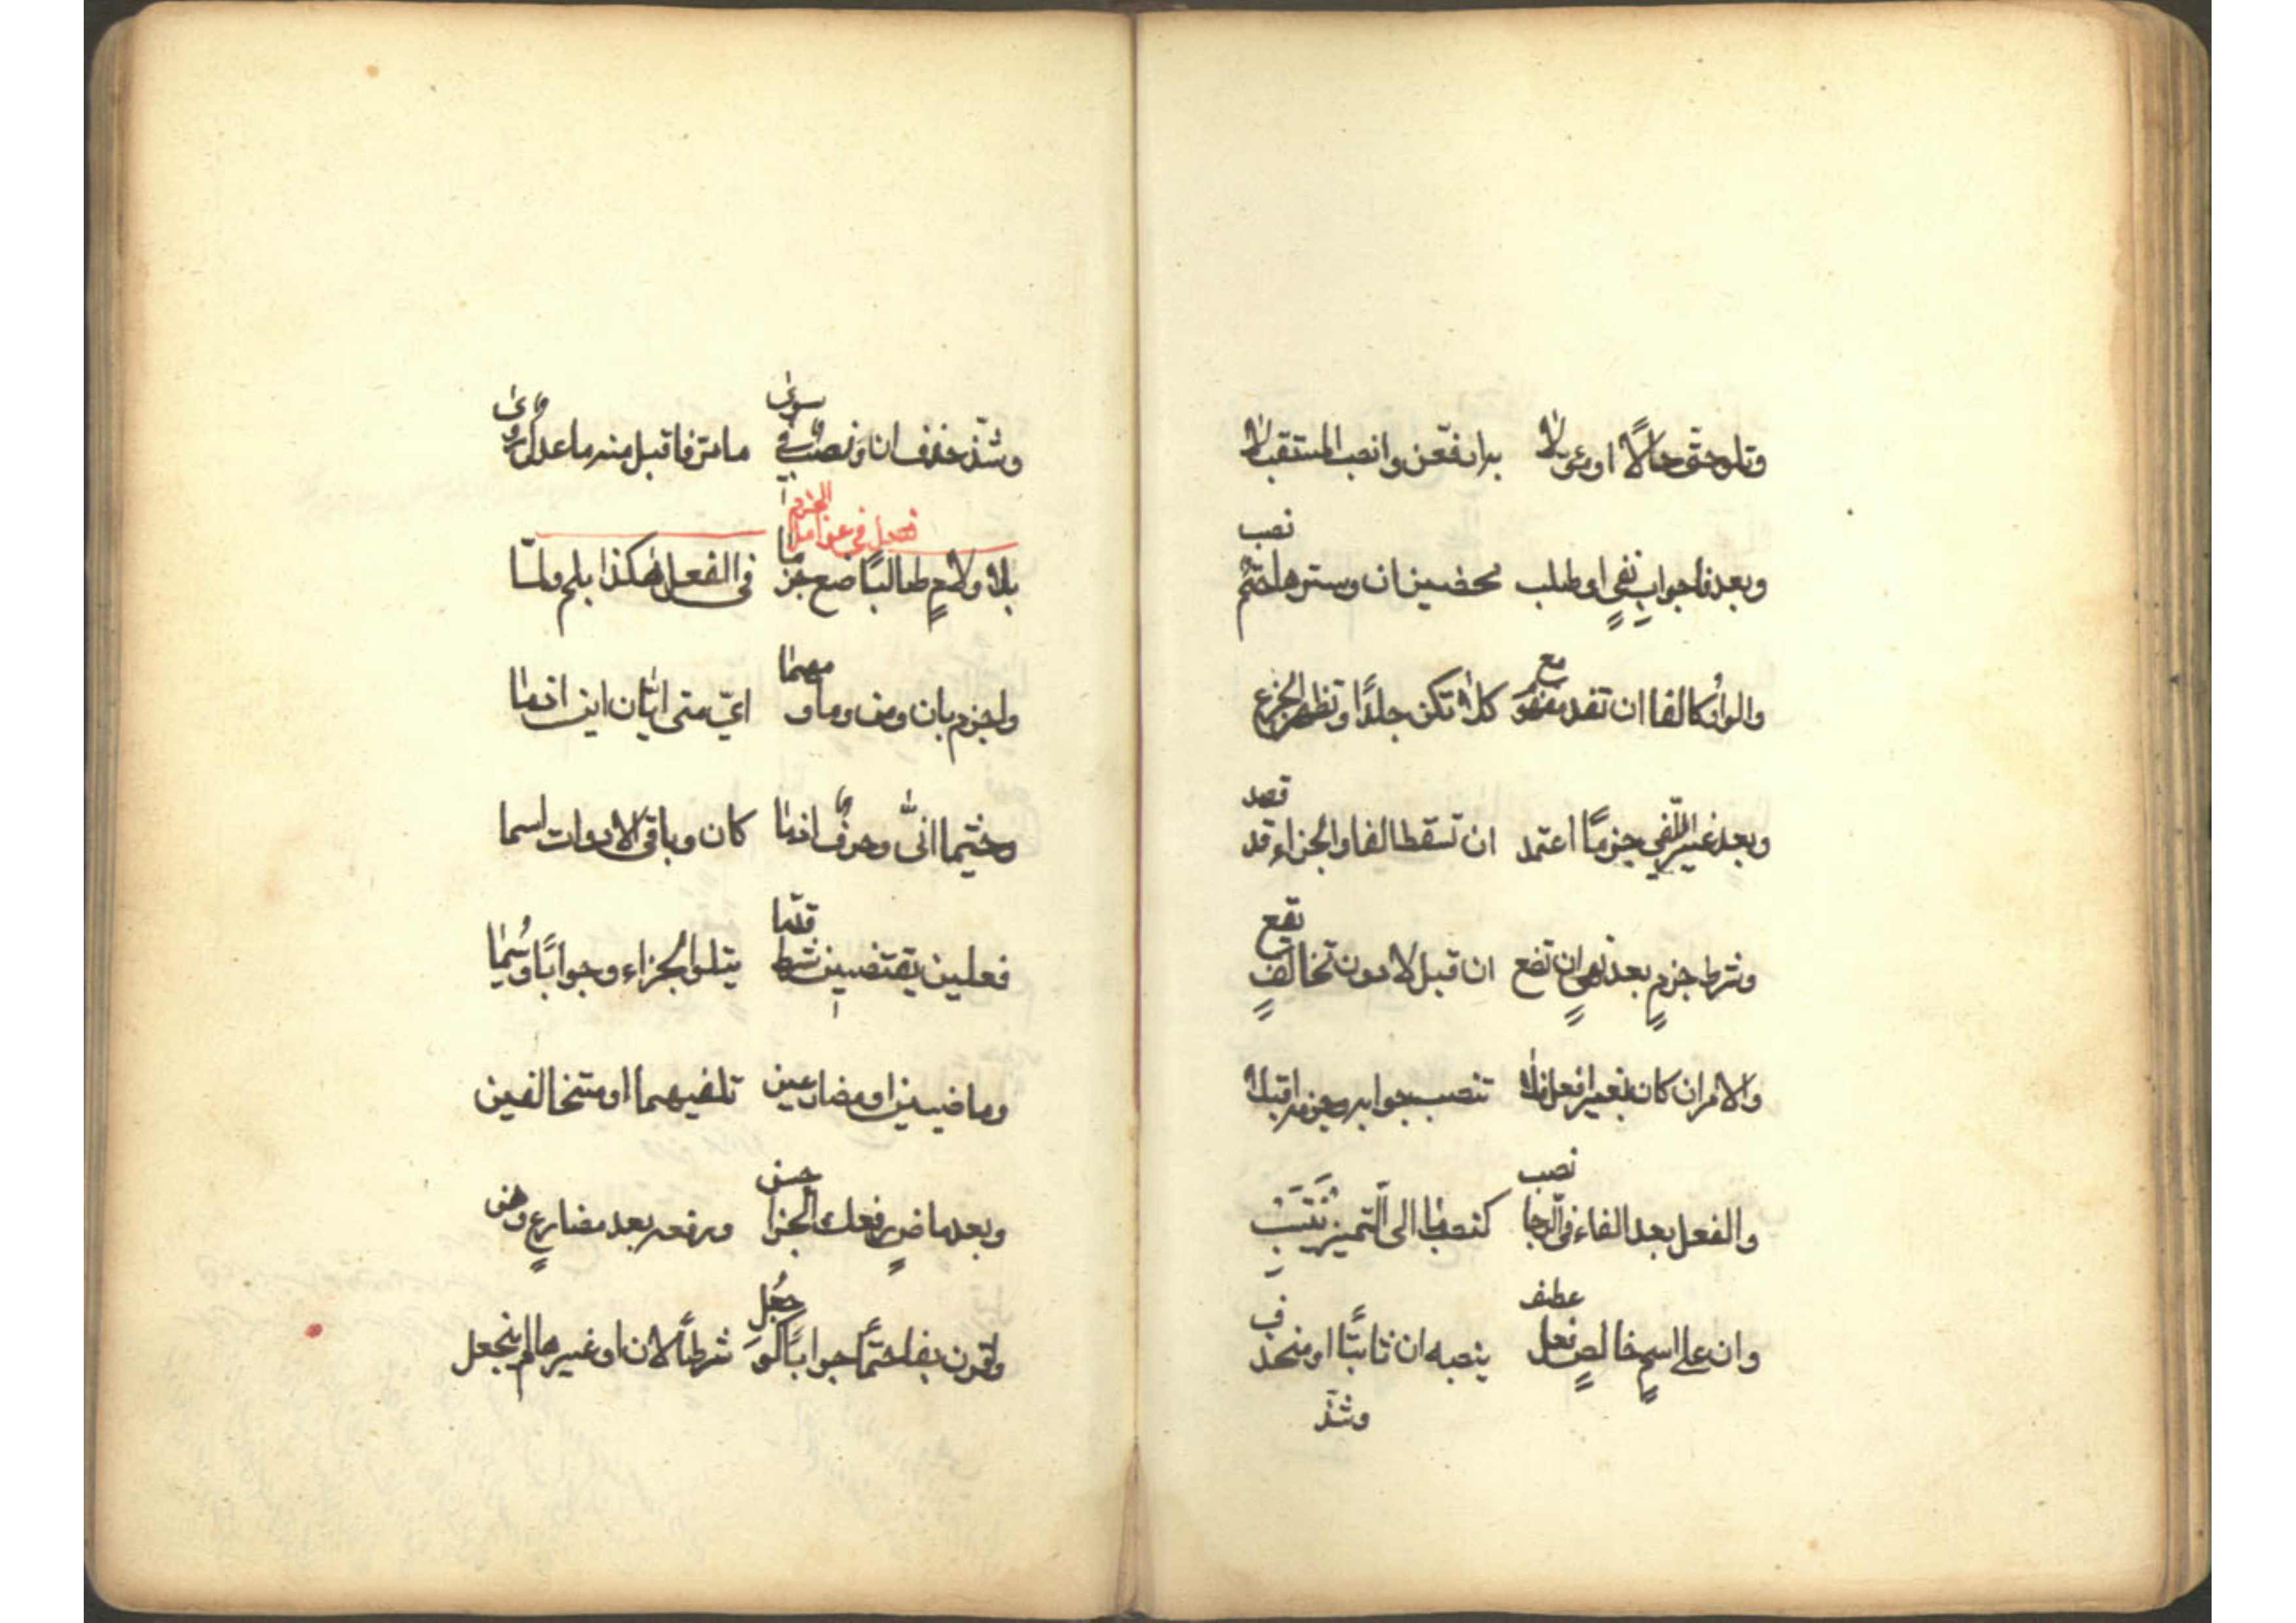 وتلو حتّى حالًا او مؤولا به ارفعنّ وانصب المستقبلا
وبعد فا جواب نفيٍ او طلب محضين ان وسترها حتمٌ نصب
والواوُ كالفا ان تفد مفهوم مع كلا تكن جلدًا وتظهر الجزع
وبعد غير النّفي جزمًا اعتمد ان تسقط الفا والجزاء قد قصد
وشرط جزمٍ بعد نهيٍ ان تضع ان قبل لا دون تخالفٍ يقع
والامر ان كان بغير افعل فلا تنصب جوابه وجزمه اقبلا
والفعل بعد الفاء فى الرّجا نصب كنصب ما الى التّمنى ينتسب
وان على اسمٍ خالصٍ فعل عطف ينصبه ان ثابتًا او منحذف
وشذّ
وشذّ حذف ان ونصبٌ فى سوى ما مرّ فاقبل منه ما عدلٌ روى
فصل فى عوامل الجزم
بلا ولامٍ طالبًا ضع جزما فى الفعل هكذا بلم ولمّا
واجزم بان ومن وما ومهما اىّ متى ايّان اين اذما
وحيثما انّى وحرفٌ اذما كان وباقى الادوات اسما
فعلين يقتضين شرط قدّما يتلوا الجزاء وجوابًا وُسما
وماضيين او مضارعين تلفيهما او متخالفين
وبعد ماضٍ رفعك الجزا حسن ورفعه بعد مضارعٍ وهن
واقرن بفا حتمًا جوابًا لو جُعل شرطًا لان او غيرها لم ينجعل